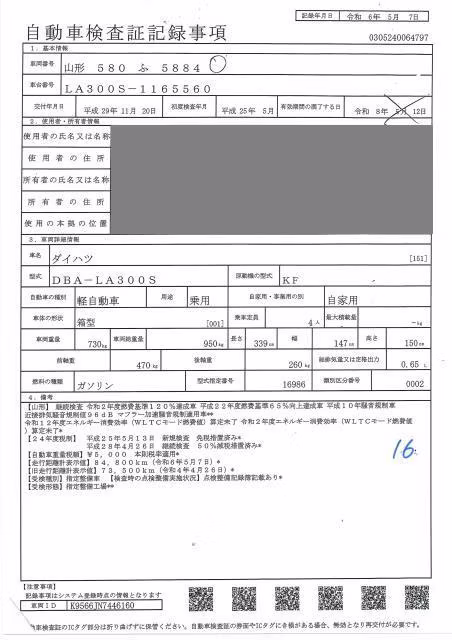 記録年月日 令和 6年 5月 7日
自動車検査証記録事項
0305240064797
1．基本情報
車両番号 山形 580 ふ 5884
車台番号 LA300S-1165560
交付年月日 平成 29年 11月 20日 初度検査年月 平成 25年 5月 有効期間の満了する日 令和 8年 5月 12日
2．使用者・所有者情報
使用者の氏名又は名称
使用者の住所
所有者の氏名又は名称
所有者の住所
使用の本拠の位置
3．車両詳細情報
車名 ダイハツ [151]
型式 DBA-LA300S 原動機の型式 KF
自動車の種別 軽自動車 用途 乗用 自家用・事業用の別 自家用
車体の形状 箱型 [001] 乗車定員 4人 最大積載量 -kg
車両重量 730kg 車両総重量 950kg 長さ 339cm 幅 147cm 高さ 150cm
前軸重 470kg 後軸重 260kg 総排気量又は定格出力 0.65 L
燃料の種類 ガソリン 型式指定番号 16986 類別区分番号 0002
4．備考
[山形] 継続検査 令和2年度燃費基準120%達成車 平成22年度燃費基準65%向上達成車 平成10年騒音規制車
近接排気騒音規制値96dB マフラー加速騒音規制適用車**
令和12年度エネルギー消費効率(WLTCモード燃費値)算定未了 令和2年度エネルギー消費効率(WLTCモード燃費値
)算定未了*
【24年度税所】 平成25年5月13日 新規検査 免税措置済み*
平成28年4月26日 継続検査 50%減税措置済み*
[自動車重量税額] ¥5,000 本則税率適用*
[走行距離計表示値] 84,800km (令和6年5月7日)*
[旧走行距離計表示値] 73,500km (令和4年4月26日)*
[受検種別] 指定整備車 [検査時の点検整備実施状況] 点検整備記録簿記載あり*
[受検形態] 指定整備工場**
16
【注意事項】
記録事項はシステム登録時点の情報となります
車両ID K9566JN7446160
自動車検査証のICタグ部分は折り曲げずに保管ください。自動車検査証の券面やICタグにき損がある場合、無効となり再交付が必要です。